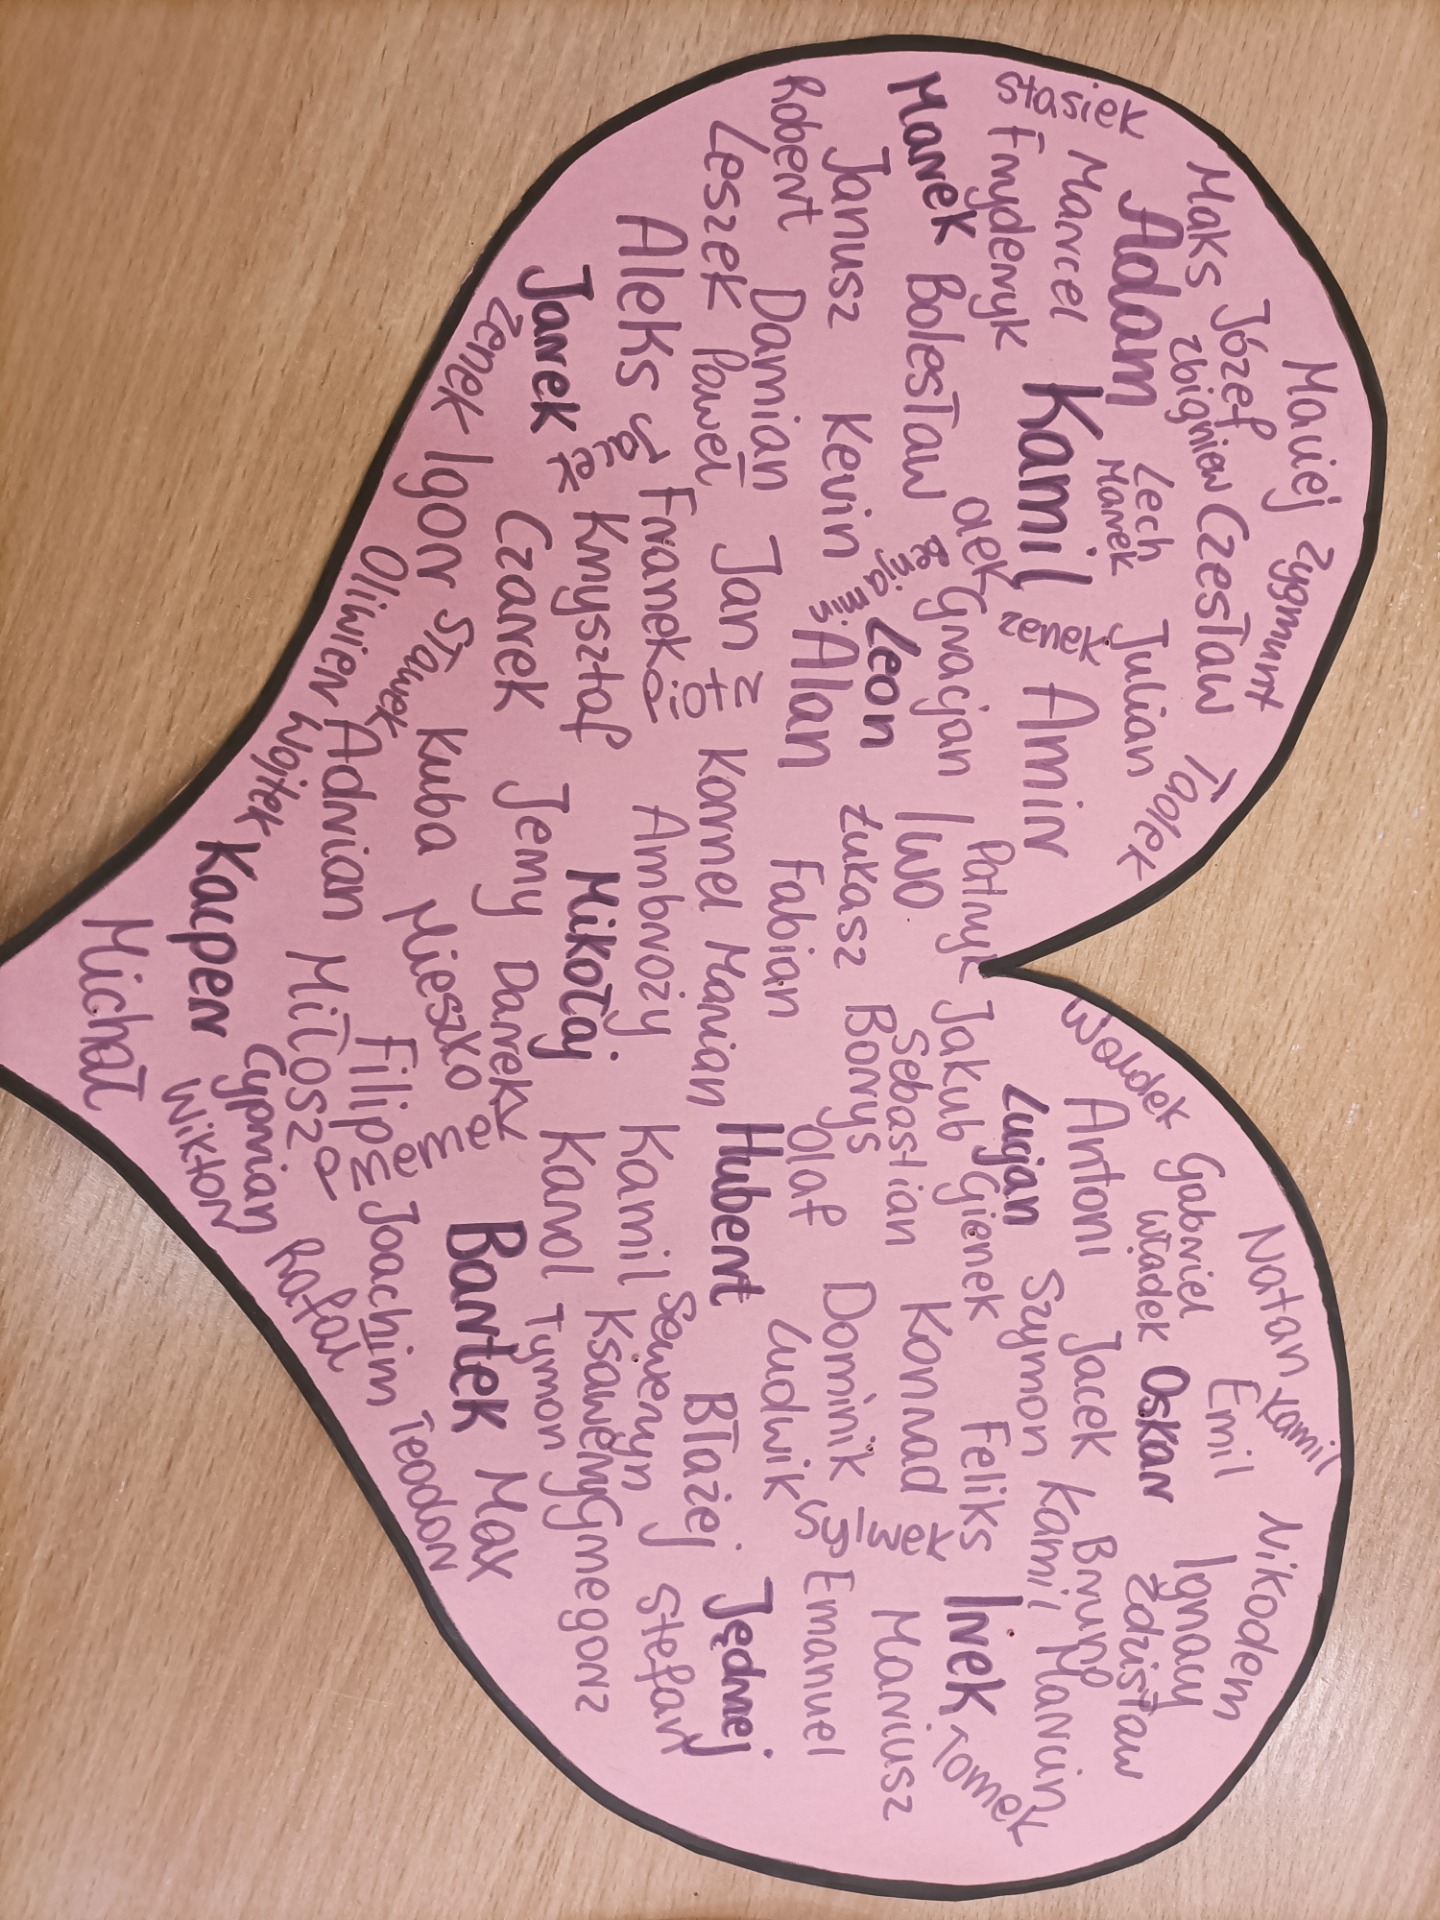 Maciej Zygmunt
Natan Kamil Nikodem
Józef
Maks Zbigniew Czesław Tadek
Gabriel Emil Ignacy
Stasiek Adam Lech Marek Julian
Władek Oskar Zdzisław
Marcel Kamil Zenek Armin
Antoni Jacek Bruno
Fryderyk Gracjan Patryk
Lucjan Szymon Kamil Marcin
Marek Bolesław Iwo
Jakub Gienek Feliks Irek Tomek
Janusz Kevin Leon Łukasz
Sebastian Konrad Mariusz
Robert Damian Alan Fabian
Borys Dominik Emanuel
Leszek Paweł Jan Kornel Marian
Olaf Ludwik Sylwek
Aleks Franek Ambroży
Hubert Błażej Jędrej
Janek Krzysztof Mikołaj
Kamil Seweryn Stefan
Zenek Czarek Jerzy Darek
Karol Ksawery Grzegorz
Tymon
Igor Sławek Kuba Mieszko
Bartek Max
Oliwier Adrian Filip Joachim Teodor
Wojtek Miłosz
Kacper Cyprian Rafał
Michał Wiktor